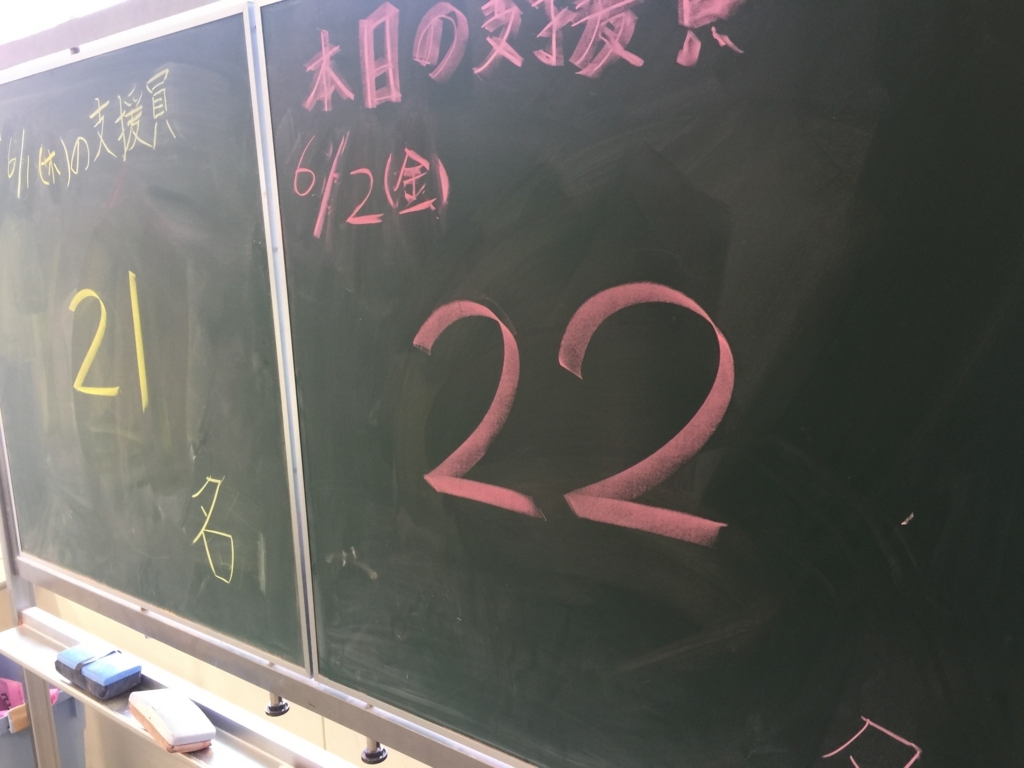 6/1(木)の支援員
21
名
本日の支援員
6/2(金)
22